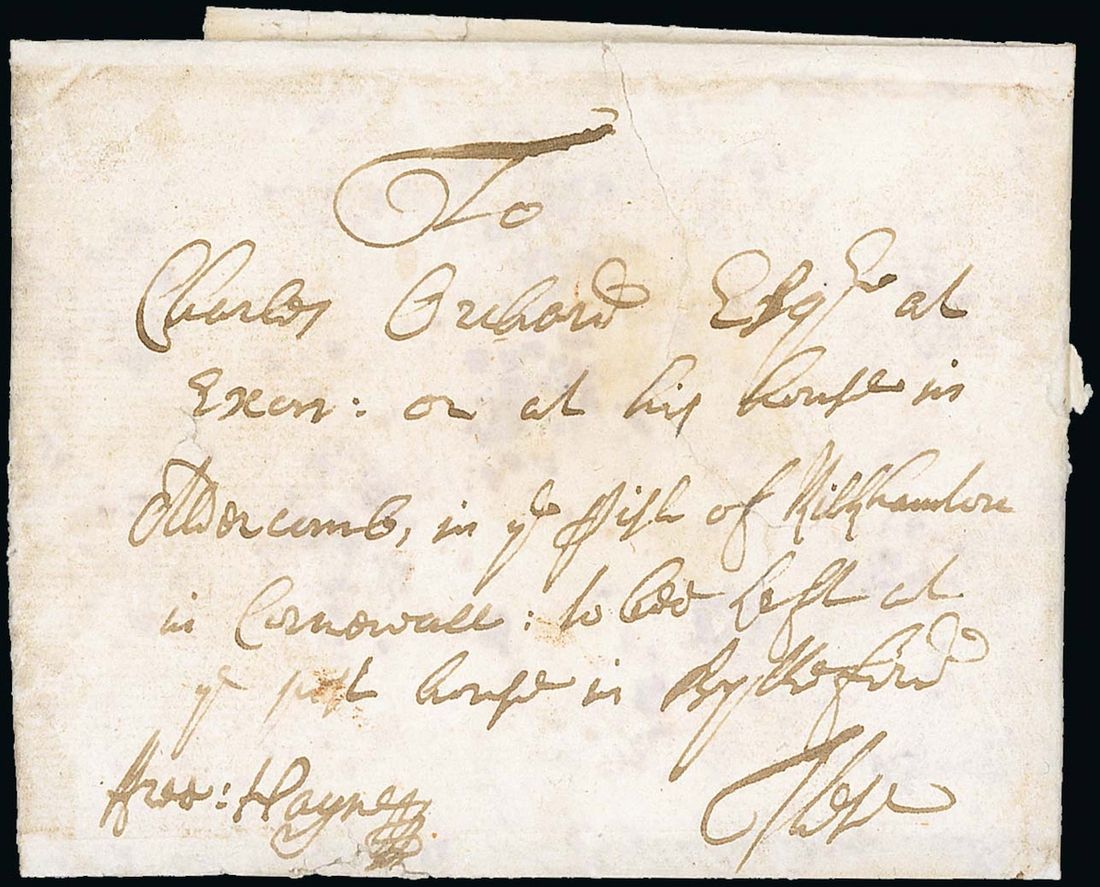 To
Charles Orchard Esqre at
Exon: or at his house in
Aldercomb, in ye pish of Kilkhamton
in Cornewall: to bee left at
ye post house in Bytheford
These
ffree: Haynes